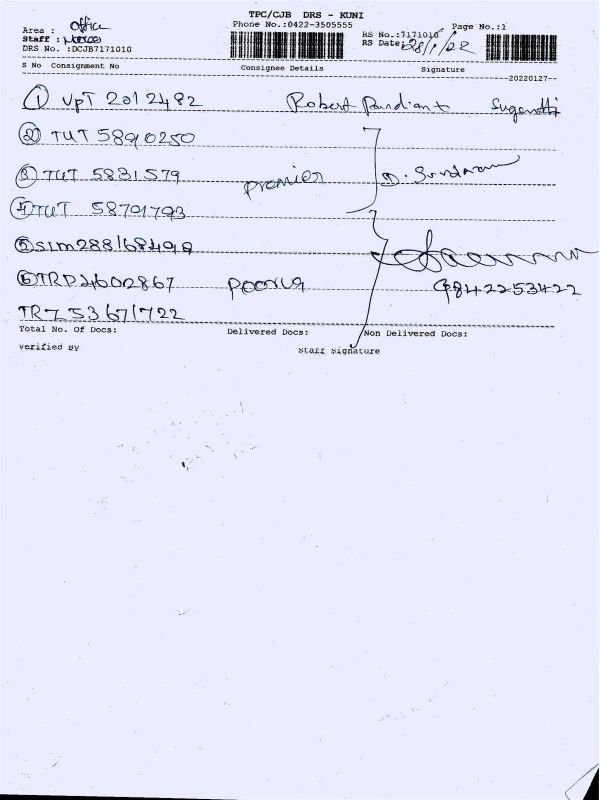 TPC/CJB DRS - KUNI
Phone No.:0422-3505555 Page No.:1
Area : Office RS No.:7171010
Staff : RS Date: 28/1/22
DRS No. :DCJB7171010
S No Consignment No Consignee Details Signature
20220127
1 VPT 2012482 Robert Pandian
2 TUT 58910250
3 TUT 5831579 premier D.
4 TUT 58701793
5 SIM288168499
6 TRP 4602867 poorva 9842253422
TR7 53671722
Total No. Of Docs: Delivered Docs: Non Delivered Docs:
Verified By Staff Signature